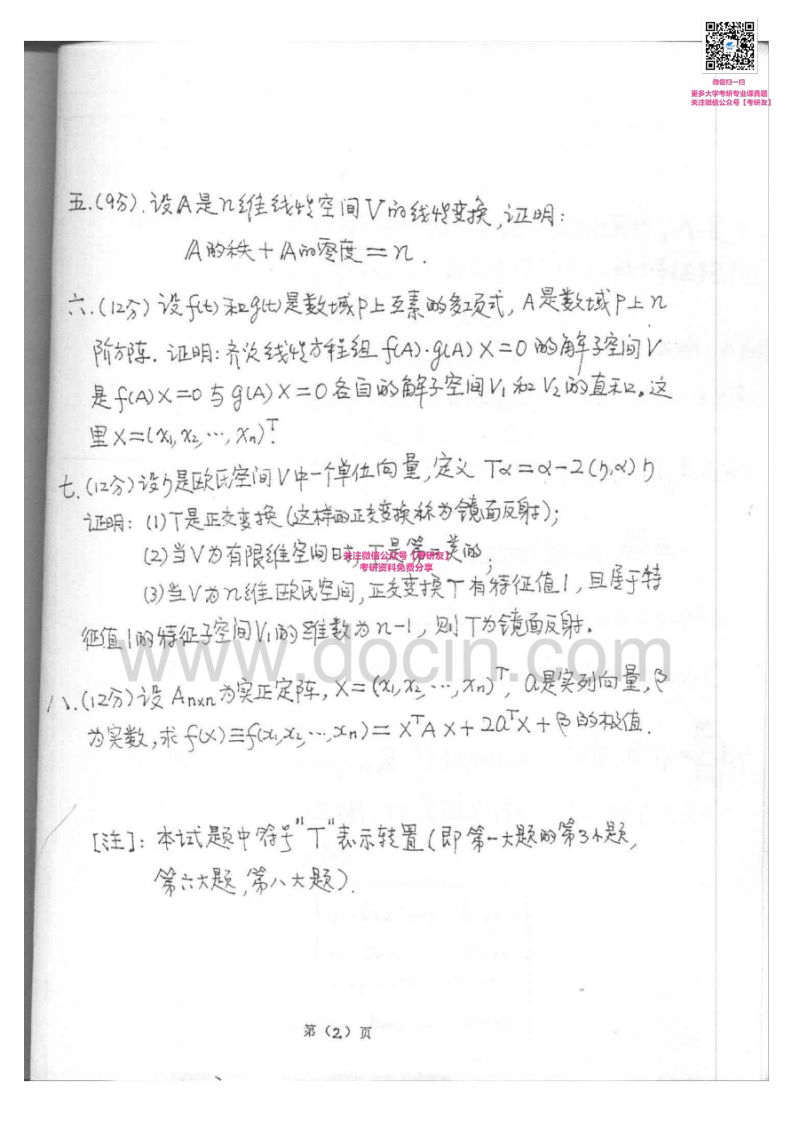 微信扫一扫
更多大学考研专业课真题
关注微信公众号【考研友】
五.(9分).设A是n维线性空间V的线性变换,证明:
A的秩+A的零度=n.
六.(12分)设f(t)和g(t)是数域P上互素的多项式,A是数域P上n
阶方阵.证明:齐次线性方程组f(A)·g(A)X=0的解子空间V
是f(A)X=0与g(A)X=0各自的解子空间V₁和V₂的直和。这
里X=(x₁,x₂,…,xₙ)ᵀ.
七.(12分)设η是欧氏空间V中一个单位向量,定义 Tα=α-2(η,α)η
证明:(1)T是正交变换(这样的正交变换称为镜面反射);
(2)当V为有限维空间时,T是第二类的;
关注微信公众号【考研友】
考研资料免费分享
(3)当V为n维欧氏空间,正交变换T有特征值1,且属于特
征值1的特征子空间V₁的维数为n-1,则T为镜面反射.
www.docin.com
八.(12分)设Aₙₓₙ为实正定阵,X=(x₁,x₂,…,xₙ)ᵀ,a是实列向量,β
为实数,求f(X)≡f(x₁,x₂,…,xₙ)=XᵀAX+2aᵀX+β的极值.
[注]:本试题中符号"T"表示转置(即第一大题的第3小题,
第六大题,第八大题).
第(2)页